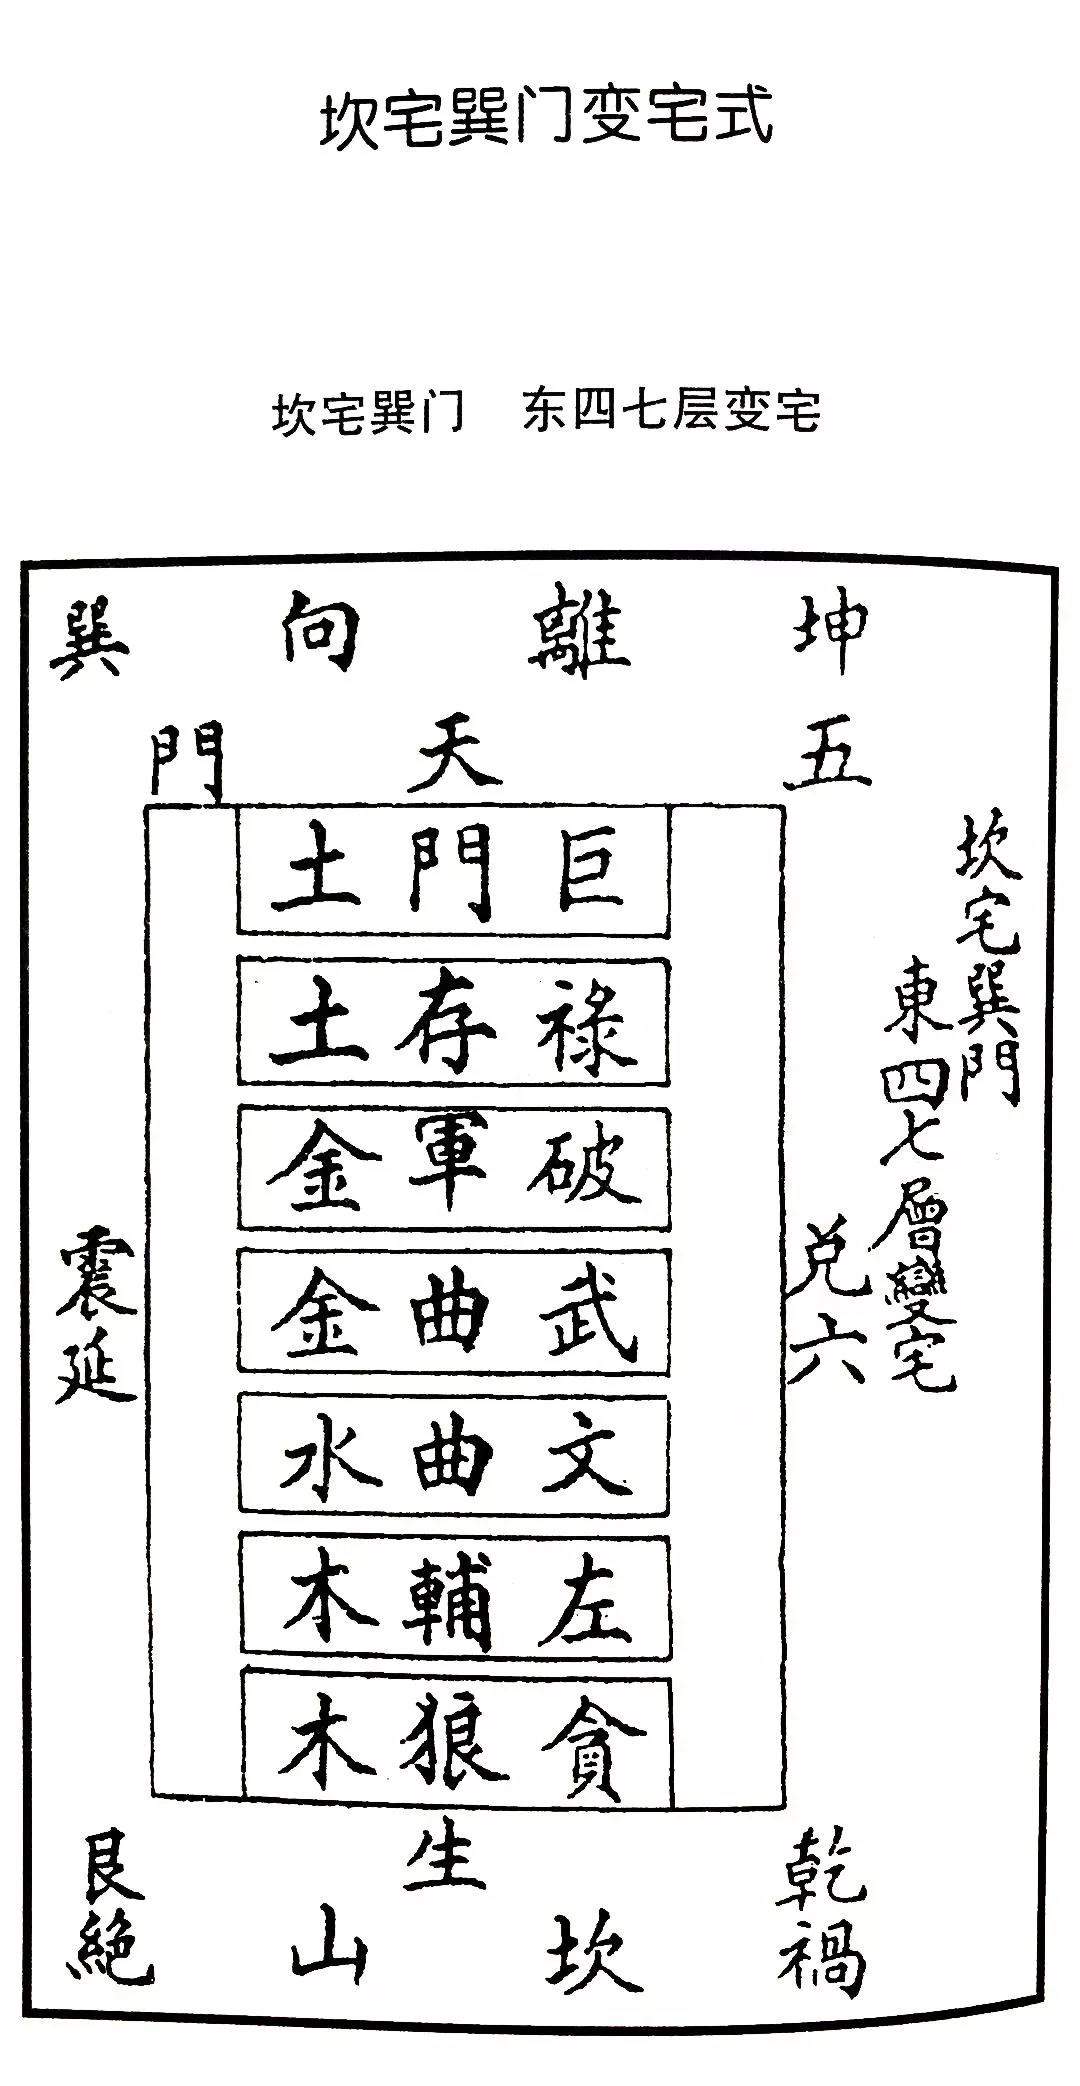 坎宅巽门变宅式
坎宅巽门 东四七层变宅
坎宅巽門
東四七層變宅
坤 離 向 巽
五 天 門
巨門土
祿存土
破軍金
武曲金
文曲水
左輔木
貪狼木
兌六
震延
生
乾禍
坎山
艮絕